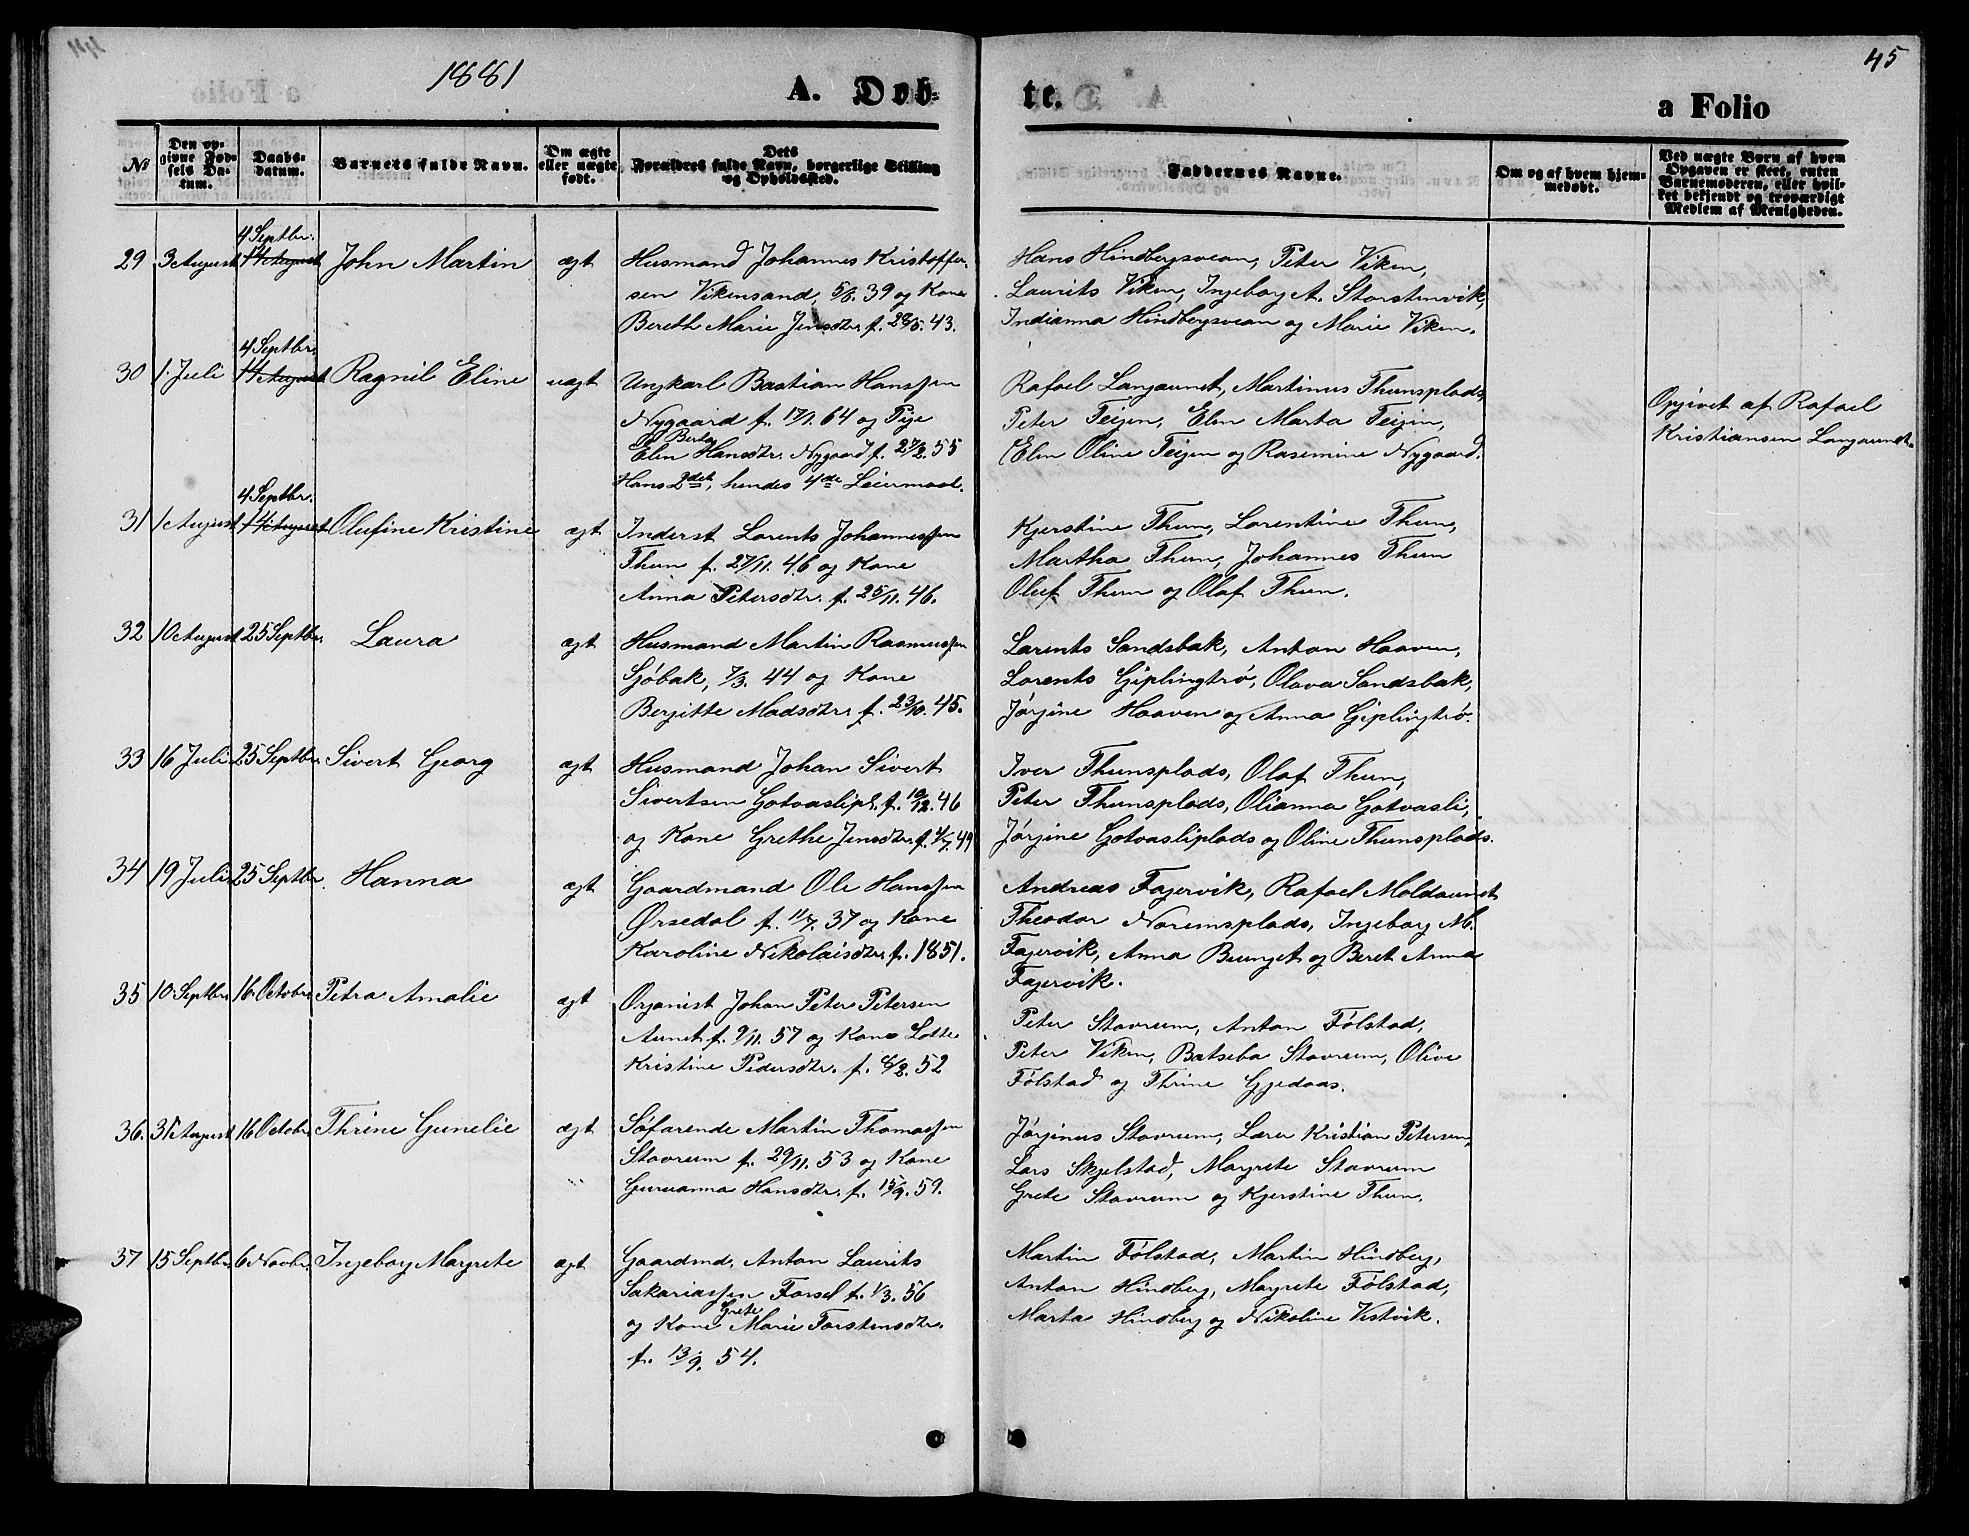 1881
A. Døb-
te.
a Folio
45
No
Den op-
givne Fød-
sels Da-
tum.
Daabs-
datum.
Barnets fulde Navn.
Om ægte
eller uægte
født.
Dets
Forældres fulde Navn, borgerlige Stilling
og Opholdssted.
Faddernes Navne.
Om og af hvem hjem-
medøbt.
Ved uægte Børn af hvem
Opgaven er skeet, enten
Barnemoderen, eller hvil-
ket bekjendt og troværdigt
Medlem af Menigheden.
4 Septbr.
29 3 August 14 August John Martin ægt Husmand Johannes Kristoffer-
sen Vikensand, 5/8. 39 og Kone
Bereth Marie Jensdtr. f. 28/5. 43.
Hans Hindbergsvean, Peter Viken,
Laurits Viken, Ingeborg A. Storstenvik,
Indianna Hindbergsvean og Marie Viken.
4 Septbr.
30 1. Juli 14 August Ragnil Eline uægt Ungkarl Bastian Hanssen
Nygaard f. 17/1. 64 og Pige
Berta
Elen Hansdtr. Nygaard f. 27/2. 55
Hans 2det, hendes 4de Leiermaal.
Rafael Langaunet, Martinus Thunsplads,
Peter Teigen, Elen Marta Teigen,
Elen Oline Teigen og Rasemine Nygaard.
Opgivet af Rafael
Kristiansen Langaunet.
4 Septbr.
31 1 August 14 August Olufine Kristine ægt Inderst Lorents Johannessen
Thun f. 27/11. 46 og Kone
Anna Petersdtr. f. 25/11. 46.
Kjerstine Thun, Lorentine Thun,
Martha Thun, Johannes Thun
Oluf Thun og Olaf Thun.
32 10 August 25 Septbr. Laura ægt Husmand Martin Rasmussen
Sjøbak, 7/3. 44 og Kone
Bergitte Madsdtr. f. 23/10. 45.
Lorents Sandsbak, Anton Haaven,
Lorents Giplingtrø, Olava Sandsbak,
Jørgine Haaven og Anna Giplingtrø.
33 16 Juli 25 Septbr. Sivert Georg ægt Husmand Johan Sivert
Sivertsen Gotvaslipl. f. 10/12. 46
og Kone Grethe Jensdtr. f. 4/7. 49
Iver Thunsplads, Olaf Thun,
Peter Thunsplads, Olianna Gotvasli,
Jørgine Gotvasliplads og Oline Thunsplads.
34 19 Juli 25 Septbr. Hanna ægt Gaardmand Ole Hanssen
Ørsedal f. 11/7. 37 og Kone
Karoline Nikolaisdtr. f. 1851.
Andreas Fagervik, Rafael Moldaunet
Theodor Noremsplads, Ingeborg M.
Fagervik, Anna Buunget og Beret Anna
Fagervik.
35 10 Septbr. 16 Octobr. Petra Amalie ægt Organist Johan Peter Petersen
Aunet f. 9/11. 57 og Kone Lotte
Kristine Pedersdtr. f. 6/2. 52
Peter Stavrum, Anton Følstad,
Peter Viken, Batseba Stavrum, Olive
Følstad og Thrine Gjedaas.
36. 31 August 16 Octobr. Thrine Gunelie ægt Søfarende Martin Thomassen
Stavrum f. 29/11. 53 og Kone
Guruanna Hansdtr. f. 15/9. 59.
Jørginus Stavrum, Lærer Kristian Petersen,
Lars Skjelstad, Margrete Stavrum
Grete Stavrum og Kjerstine Thun.
37 15 Septbr. 6 Novbr. Ingeborg Margrete ægt Gaardmd. Anton Laurits
Sakariassen Forsel f. 1/3. 56
Grete
og Kone Marie Torstensdtr.
f. 13/9. 54.
Martin Følstad, Martin Hindberg,
Anton Hindberg, Margrete Følstad,
Marta Hindberg og Nikoline Vestvik.